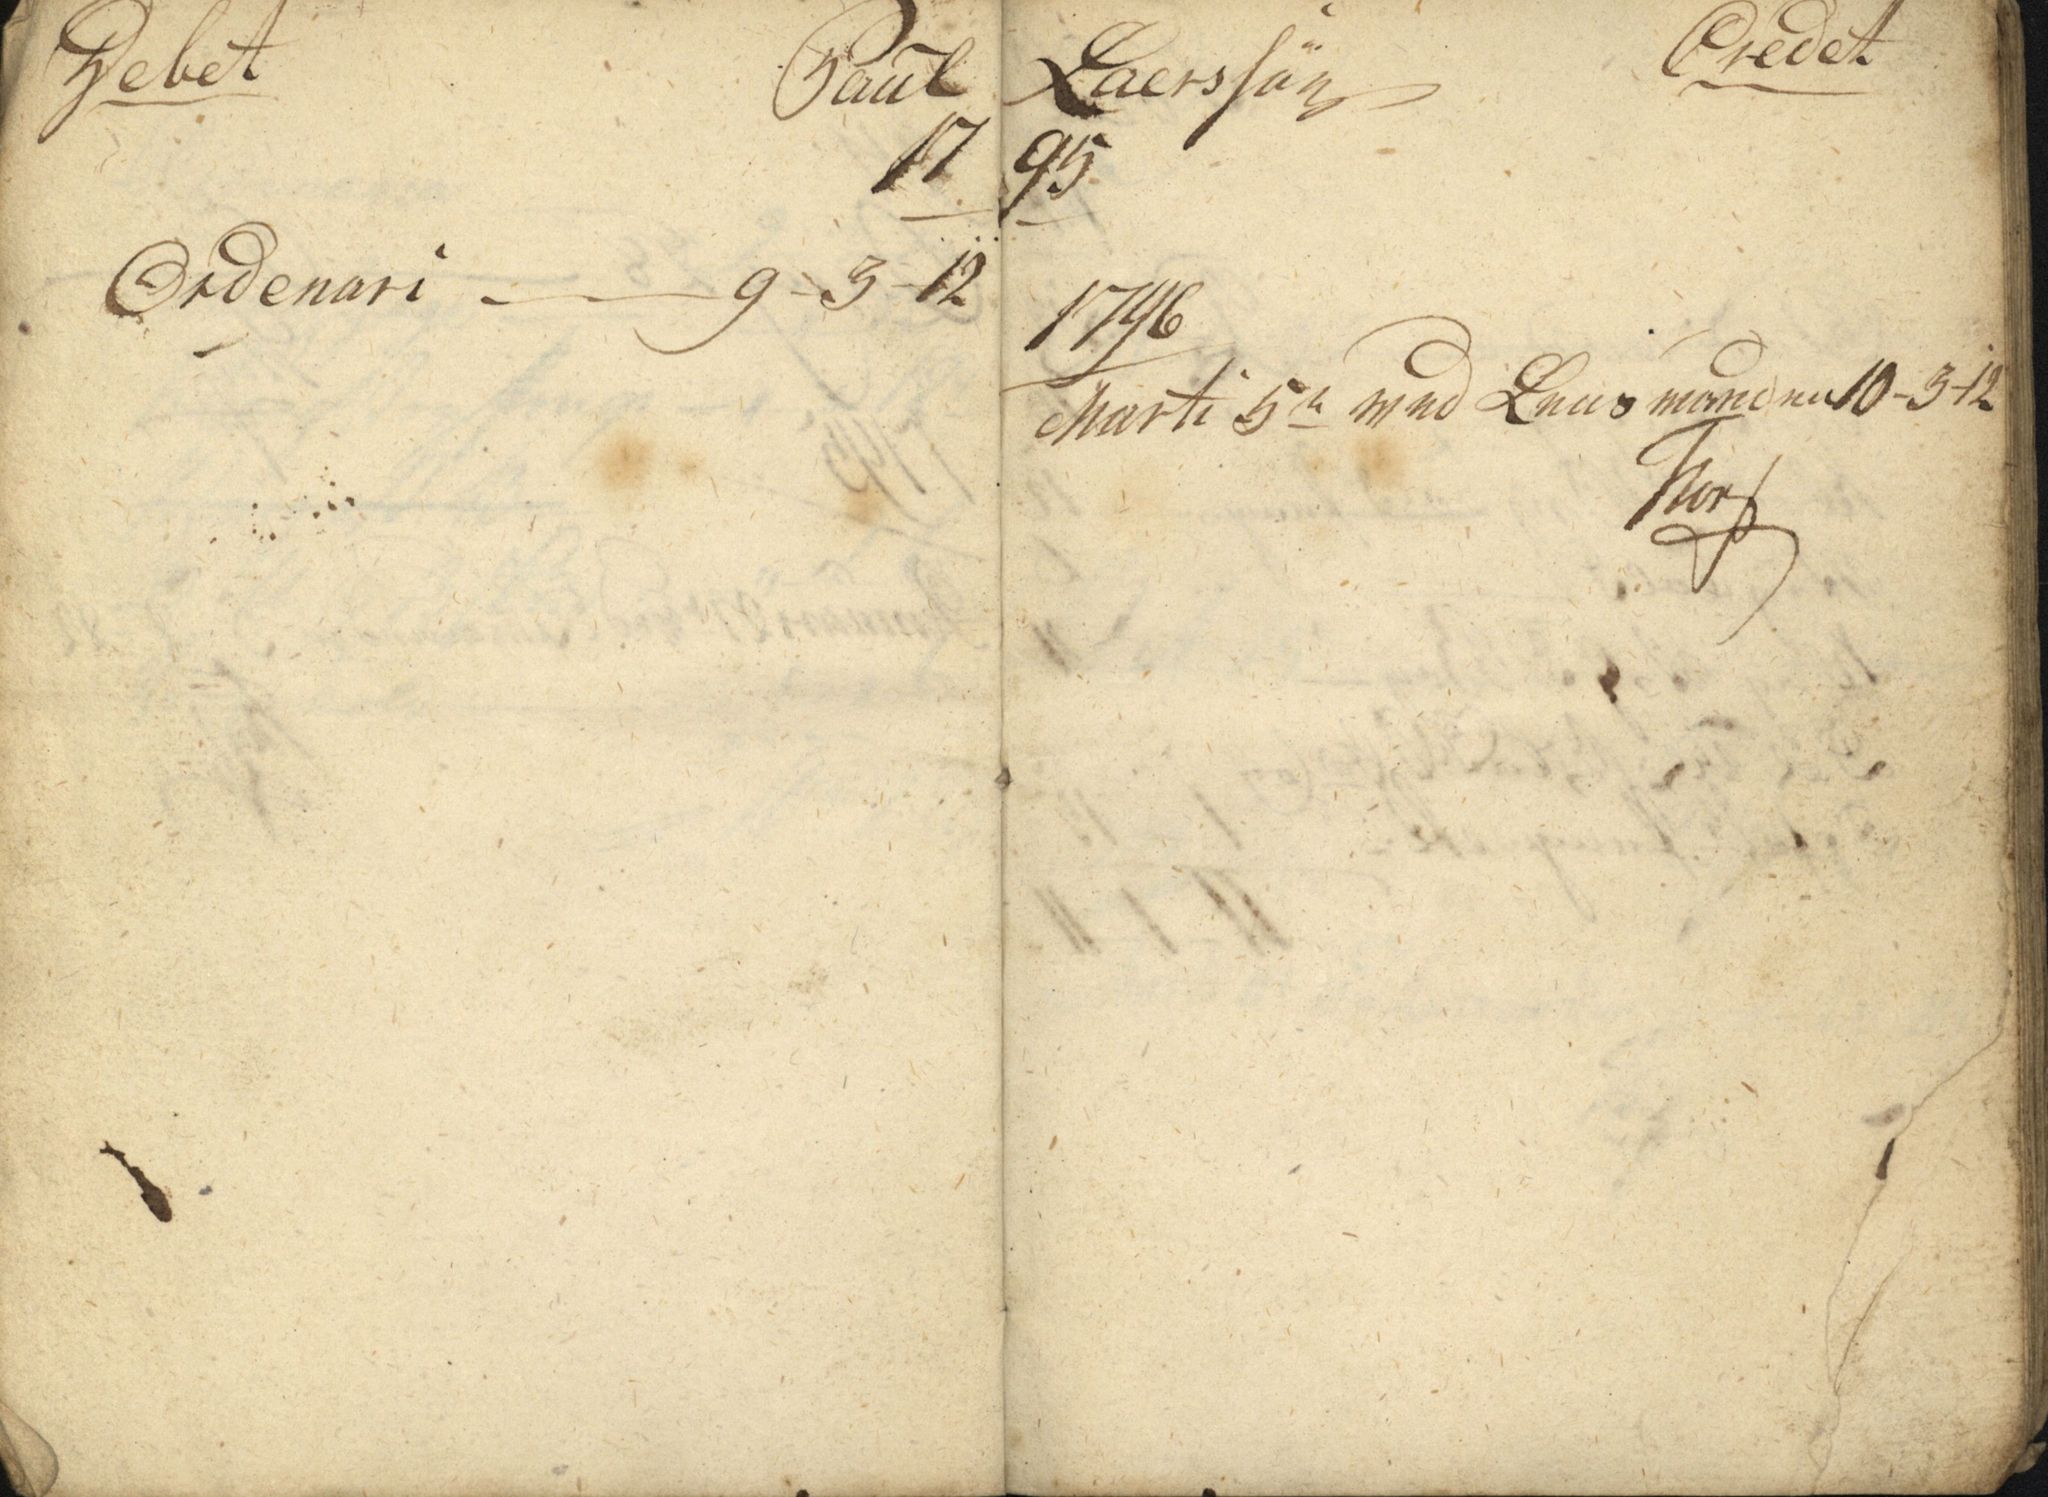 Debet Paul Laerssön Credet
1795
Ordenari 9-3-12
1796
Marti 5te med Lensmanden 10-3-12